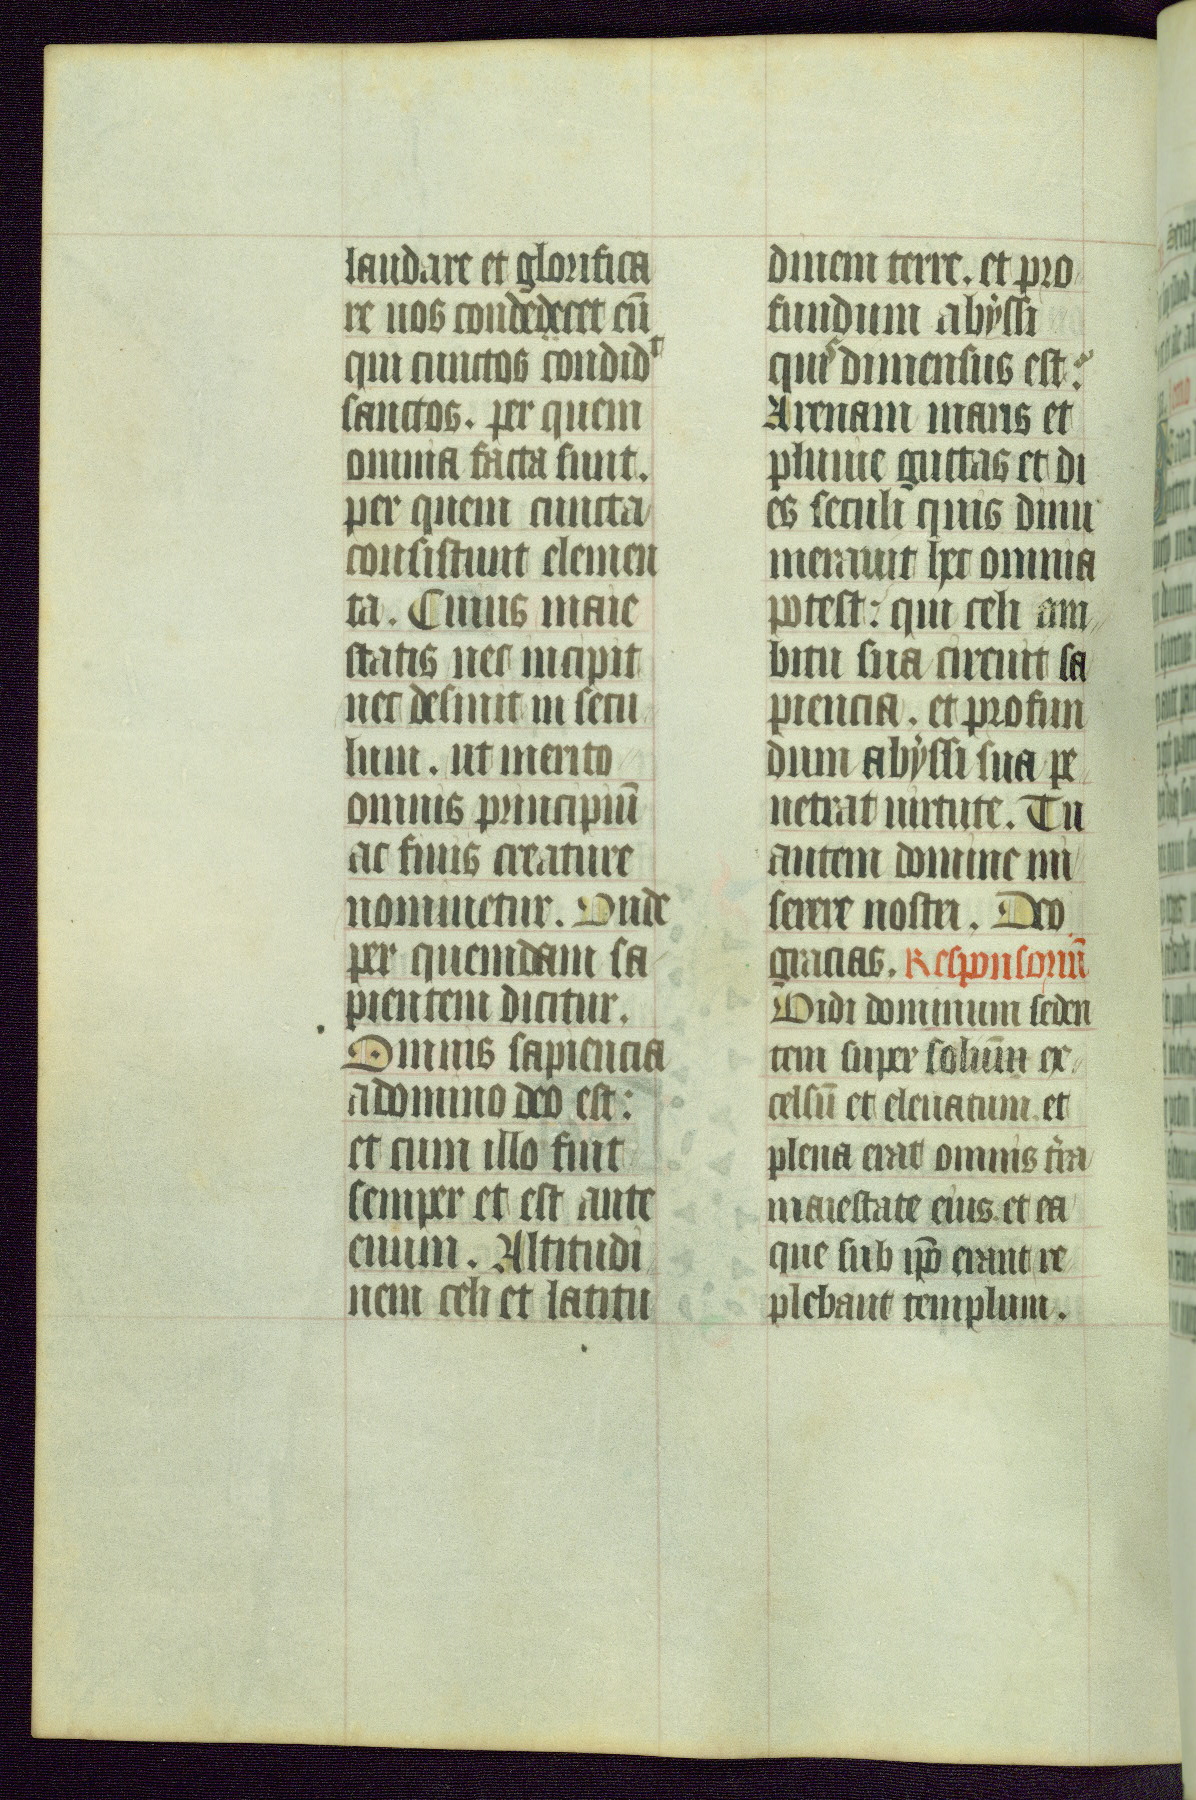 laudare et glorifica
re nos condedecet cū
qui cunctos condidᵗ
sanctos. per quem
omnia facta sunt.
per quem cuncta
consistunt elemen
ta. Cuius maie
statis nec incipit
nec desinit in secu
lum. ut merito
omnis principiū
ac finis creature
nominetur. Unde
per quemdam sa
pientem dicitur.
Omnis sapiencia
adomino deo est:
et cum illo fuit
semper et est ante
euum. Altitudi
nem celi et latitu
dinem terre. et pro
fundum abyssi
quiˢ dimensus est:
Arenam maris et
pluuie guttas et di
es seculi quis dinu
merauit hec omnia
potest: qui celi am
bitu sua circuit sa
piencia. et profun
dum abyssi sua pe
netrat uirtute. Tu
autem domine mi
serere nostri. Deo
gracias. Responsoriū
Vidi dominum seden
tem super solium ex
celsū et eleuatum. et
plena erat omnis t̄ra
maiestate eius. et ea
que sub ip̄o erant re
plebant templum.